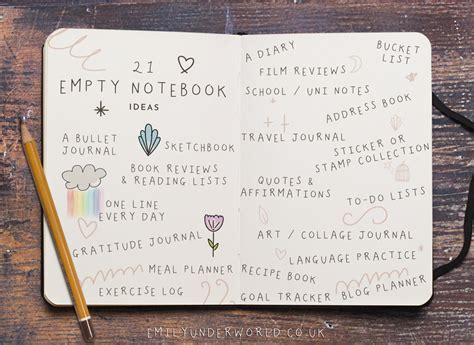 21
EMPTY NOTEBOOK
IDEAS
A BULLET
JOURNAL
SKETCHBOOK
BOOK REVIEWS
& READING LISTS
ONE LINE
EVERY DAY
GRATITUDE JOURNAL
MEAL PLANNER
EXERCISE LOG
A DIARY
BUCKET
LIST
FILM REVIEWS
SCHOOL / UNI NOTES
ADDRESS BOOK
TRAVEL JOURNAL
STICKER OR
STAMP COLLECTION
QUOTES &
AFFIRMATIONS
TO-DO LISTS
ART / COLLAGE JOURNAL
LANGUAGE PRACTICE
RECIPE BOOK
GOAL TRACKER
BLOG PLANNER
EMILYUNDERWORLD.CO.UK